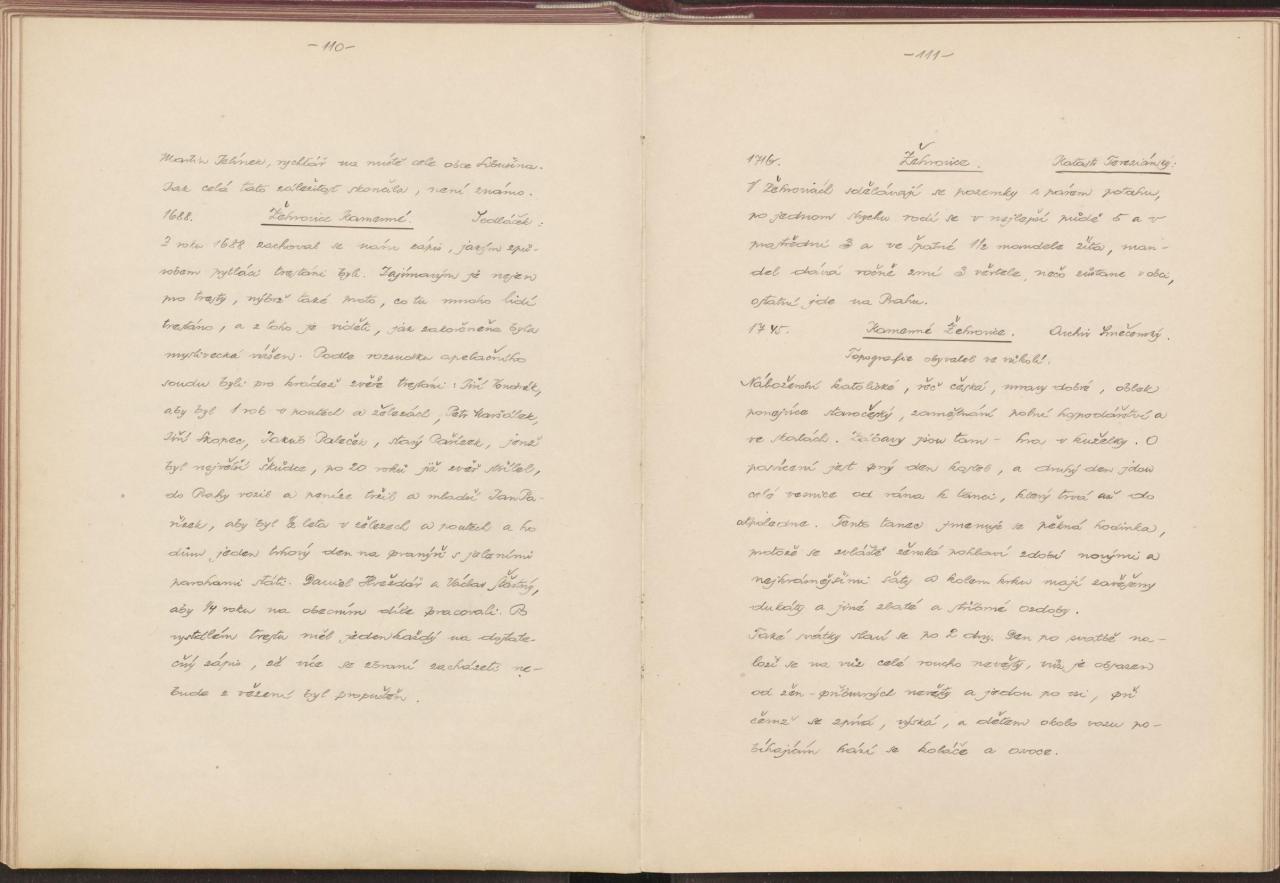 -110-
Martin Jelínek, rychtář na místě celé obce Libušína.
Jak celá tato záležitost skončila, není známo.
1688. Žehrovice Kamenné. Sedláček:
Z roku 1688 zachoval se nám zápis, jakým způ-
sobem pytláci trestáni byli. Zajímavým je nejen
pro tresty, nýbrž také proto, co tu mnoho lidí
trestáno, a z toho je viděti, jak zakořeněna byla
myslivecká vášeň. Podle rozsudku apelačního
soudu byli pro krádež zvěře trestáni: Jiří Vondrák,
aby byl 1 rok v poutech a železách, Petr Maršálek,
Jiří Skopec, Jakub Paleček, starý Pařízek, jenž
byl největší škůdce, po 20 roků již zvěř střílel,
do Prahy vozil a peníze tržil a mladší Jan Pa-
řízek, aby byl 2 léta v železech a poutech a ho
dinu jeden trhový den na pranýři s jeleními
parohami státi. Daniel Hvězdář a Václav Šťastný,
aby 1/4 roku na obecním díle pracovali. Po
vystálém trestu měl jedenkaždý na dostate-
čný zápis, že více se zbraní zacházeti ne-
bude z vězení byl propuštěn.
-111-
1716r. Žehrovice. Katastr Tereziánský:
V Žehrovicích sdělávají se pozemky s párem potahu,
po jednom strychu rodí se v nejlepší půdě 5 a v
prostřední 3 a ve špatné 1 1/2 mandele žita, man-
del dává ročně zrní 3 věrtele, něco zůstane v obci,
ostatní jde na Prahu.
1745. Kamenné Žehrovice. Archiv Smečenský.
Topografie obyvatel ve vůkolí.
Náboženství katolické, řeč česká, mravy dobré, oblek
ponejvíce staročeský, zaměstnání polní hospodářství a
ve skalách. Zábavy jsou tam - hra v kuželky. O
posvícení jest prvý den kostel, a druhý den jdou
celé vesnice od rána k tanci, který trvá až do
odpoledne. Tento tanec jmenuje se pěkná hodinka,
protože se zvláště ženské pohlaví zdobí novými a
nejkrásnějšími šaty a kolem krku mají zavěšeny
dukáty a jiné zlaté a stříbrné ozdoby.
Také svátky slaví se po 2 dny. Den po svatbě na-
loží se na vůz celé roucho nevěsty, vůz je obsazen
od žen-příbuzných nevěsty a jedou po vsi, při
čemž se zpívá, výská, a dětem okolo vozu po-
bíhajícím hází se koláče a ovoce.